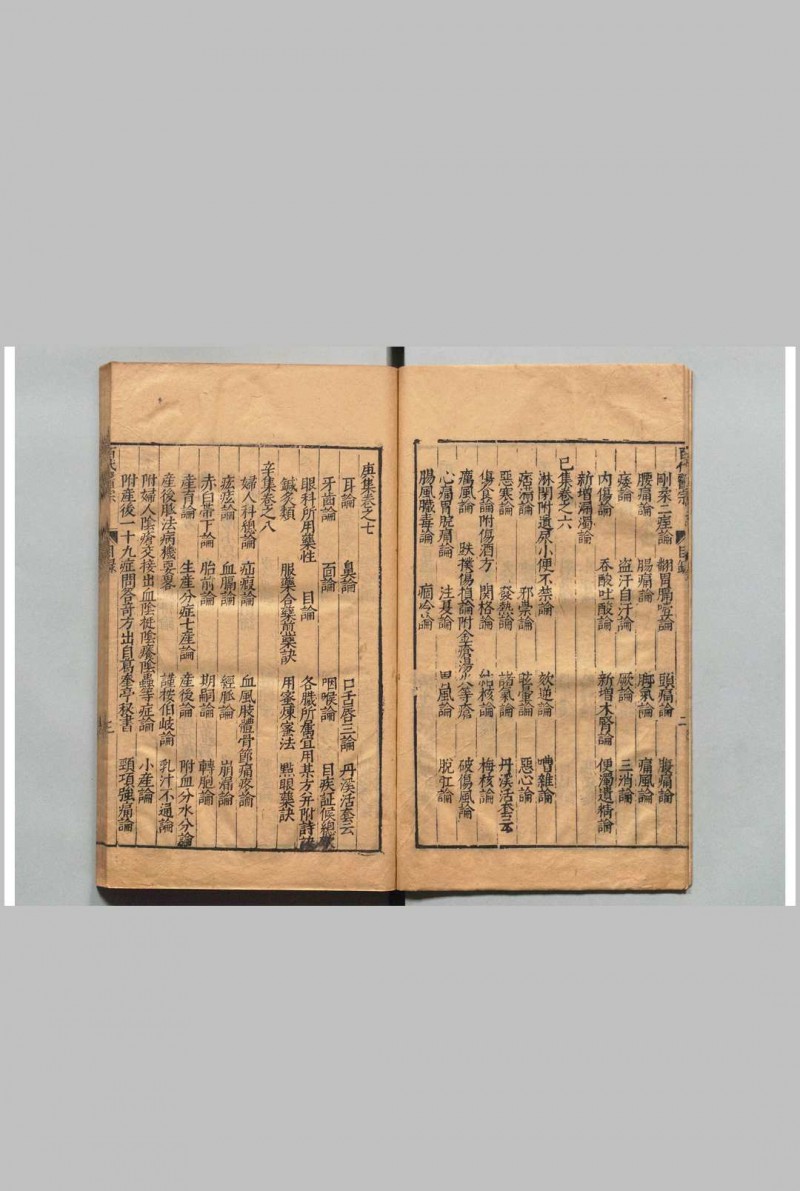 剛柔二痓論　翻胃膈噎論　頭痛論　腹痛論
腰痛論　腸痛論　脚氣論　痛風論
痿論　盗汗自汗論　厥論　三消論
內傷論　吞酸吐酸論　新增木腎論　便濁遺精論
新增漏濁論
己集卷之六
淋閉附遺尿小便不禁論　欬逆論　嘈雜論
痞滿論　邪祟論　眩暈論　惡心論
惡寒論　發熱論　諸氣論　丹溪活套云
傷食論附傷酒方　関格論　結核論　梅核論
癘風論　跌撲傷損論附金瘡湯火等瘡　破傷風論
心痛胃脘痛論　注夏論　脫肛論
腸風臟毒論　癇
庚集卷之七
耳論　鼻論　口舌唇三論　丹溪活套云
牙齒論　面論　咽喉論　目疾証候總
眼科所用藥性　目論　各臟所屬宜用某方并附詩訣
鍼灸類　服藥合藥煎藥訣　用蜜煉蜜法　點眼藥訣
辛集卷之八
婦人科總論　疝瘕論　血風肢體骨節痛疼論
痃論　血膈論　經脈論　崩漏論
赤白帶下論　胎前論　期嗣論　轉胞論
産育論　生產分症七産論　産後論　附血分水分論
産後脈法病機要畧　謹按伯岐論　乳汁不通論
附婦人陰瘡交接出血陰挺陰癢陰蟲等症論　小産論
附産後一十九症問答奇方出自葛奎亭秘書　頸項強痛論
目錄
三
目錄
二